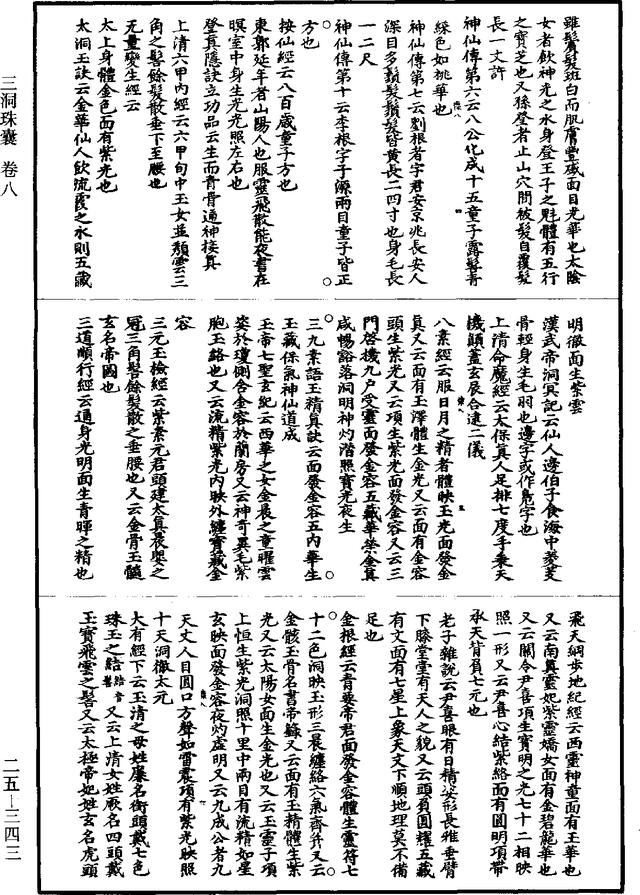 雖鬢髮斑白而肌膚豐盛面目光華也太陰
女者飲神光之水身登王子之魁體有五行
之寶芝也又孫登者止山穴間被髮自覆髮
長一丈許
神仙傳第六云八公化成十五童子露髻青
綵色如桃華也
神仙傳第七云劉根者字君安京兆長安人
深目多鬚髮鬚髮皆黃長二四寸也身毛長
一二尺
神仙傳第十云李根字子源兩目童子皆正
方也
按仙經云八百歲童子方也
東郭延年者山陽人也服靈飛散能夜書在
暝室中身生光光照左右也
登真隱訣立功品云生而青骨通神接真
上清六甲內經云六甲旬中玉女並頹雲三
角之髻餘髮散垂下至腰也
無量變生經云
太上身體金色面有紫光也
太洞玉訣云金華仙人飲流霞之水則五藏
明徹面生紫雲
漢武帝洞冥記云仙人邊伯子食海中菱芰
骨輕身生毛羽也邊字或作鳧字也
上清命魔經云太保真人足排七度手秉天
機顛蓋玄辰合逮二儀
八素經云服日月之精者體映玉光面發金
真又云面有玉澤體生金光又云面有金容
頭生紫光又云項生紫光面發金容又云三
門啓機九戶受靈面發金容五藏華榮金真
咸暢豁落洞明神灼潛照寶光夜生
三九素語玉精真訣云面發金容五內華生
玉藏保氣神仙道成
玉帝七聖玄紀云西華之女金晨之童曜雲
姿於瓊側含金容於蘭房又云神奇異毛紫
胞玉絡也又云流精紫光內映外纏寶藏金
容
三元玉檢經云紫素元君頭建太真晨嬰之
冠三角髻餘髮散之垂腰也又云金骨玉髓
玄名帝圖也
三道順行經云通身光明面生青暉之精也
飛天綱步地紀經云西靈神童面有玉華也
又云南真靈妃紫靈嬌女面有金碧龍華也
又云關令尹喜項生寶明之光七十二相映
照一形又云尹喜心結紫絡面有圓明項帶
承天背負七元也
老子雜說云尹喜眼有日精姿形長雅垂臂
下膝堂堂有天人之貌又云頭負圓耀五藏
有文面有七星上象天文下順地理莫不備
足也
金根經云青要帝君面發金容體生靈符七
十二色洞映玉形三晨纏絡六氣齊并又云
金骸玉骨名書帝籙又云面有玉精體生紫
光又云太陽女面生金光也又云玉靈子項
上恒生紫光洞照十里中兩目有流精如星
玄映面發金容夜灼虛明又云九成公者九
天丈人目圓口方聲如雷震項有紫光映照
十天洞徹太元
大有經下云玉清之母姓廉名衡頭戴七色
珠玉之結又云上清女姓厥名四頭戴
玉寶飛雲之髻又云太極帝妃姓玄名虎頭
三洞珠囊 卷八
二五—三四三